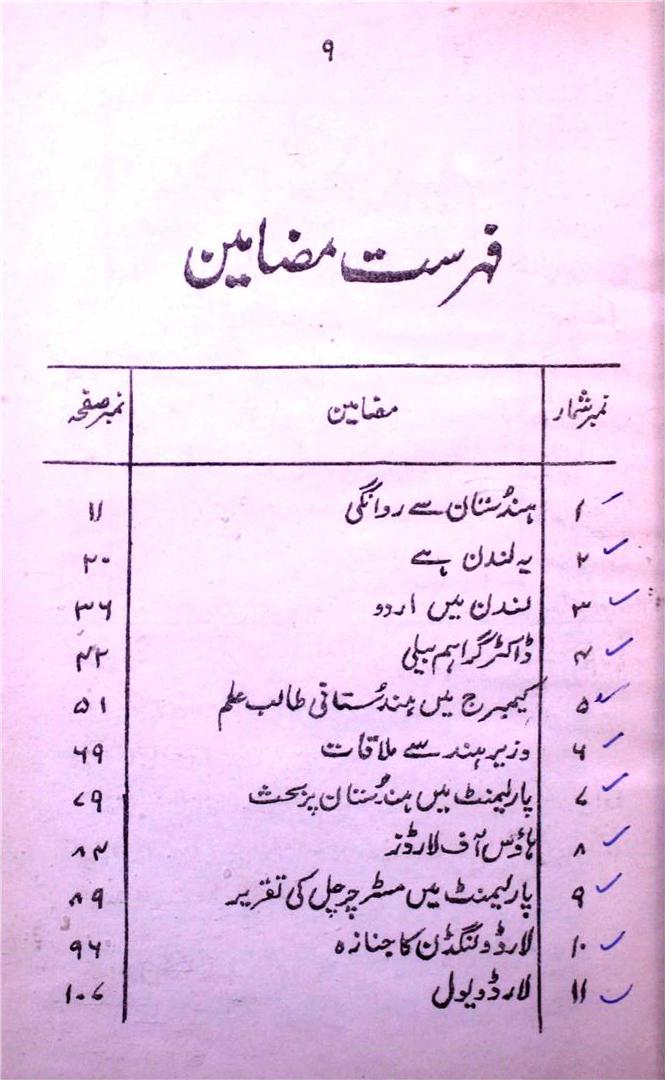 ۹
فہرست مضامین
نمبرشمار مضامین نمبرصفحہ
۱ ہندُستان سے روانگی ۱۱
۲ یہ لندن ہے ۲۰
۳ لندن میں اردو ۳۶
۴ ڈاکٹر گراہم بیلی ۴۲
۵ کیمبرج میں ہندُستانی طالب علم ۵۱
۶ وزیر ہند سے ملاقات ۶۹
۷ پارلیمنٹ میں ہندُستان پر بحث ۷۹
۸ ہاؤس آف لارڈز ۸۴
۹ پارلیمنٹ میں مسٹر چرچل کی تقریر ۸۹
۱۰ لارڈ ولنگڈن کا جنازہ ۹۶
۱۱ لارڈ ویول ۱۰۷